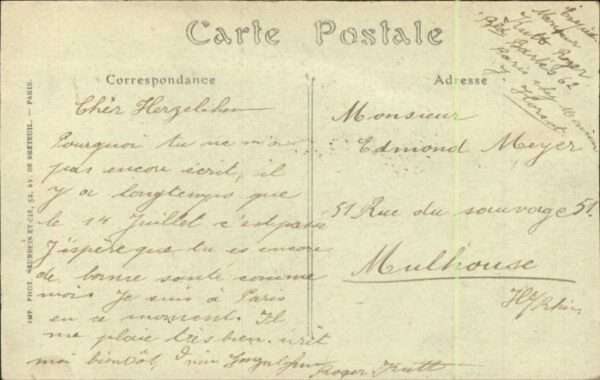 Carte Postale
Correspondance
Adresse
Chèr Herzelichen
Pourquoi tu ne m'a
pas encore écrit, il
y a longtemps que
le 14 Juillet c'est passé
J'éspère que tu es encore
de bonne santé comme
moi. Je suis à Paris
en ce moment. Il
me plaie très bien. ecrit
moi bientôt,
Roger Krutt
Monsieur
Edmond Meyer
51 Rue du sauvage 51.
Mulhouse
Ht/Rhin
Monsieur
Roger
Paris chez
IMP. PHOT. NEURDEIN ET CIE, 52, AV. DE BRETEUIL. — PARIS.